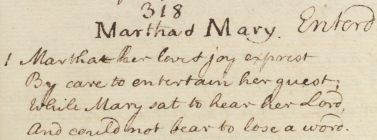 318
Martha & Mary. Enterd
1 Martha her love & joy exprest
By care to entertain her guest;
While Mary sat to hear her Lord,
And could not bear to lose a word.